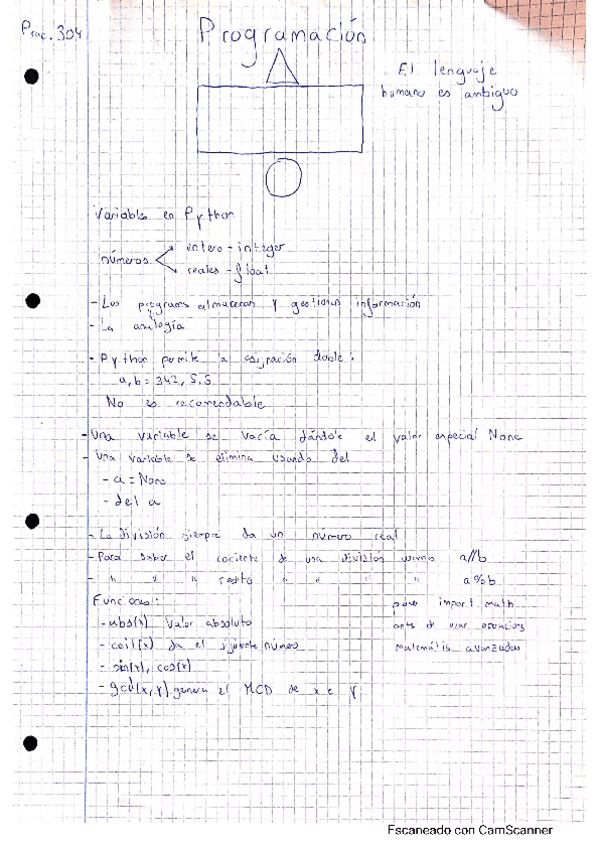 Prac. 304
Programación
El lenguaje
humano es ambiguo
Variables en Python
números
entero - integer
reales - float
- Los programas almacenan y gestionan información
- La analogía
- Python permite la asignación doble:
a, b = 342, 5.5
No es recomendable
- Una variable se vacía dándole el valor especial None
- Una variable se elimina usando del
- a = None
- del a
- La división siempre da un número real
- Para saber el cociente de una división usamos a//b
- " " " resto " " " " a%b
Funciones:
- abs(x) valor absoluto
- ceil(x) da el siguiente número
- sin(x), cos(x)
- gcd(x, y) genera el MCD de x e y
poner import math
antes de usar
matemátis avanzadas
Escaneado con CamScanner